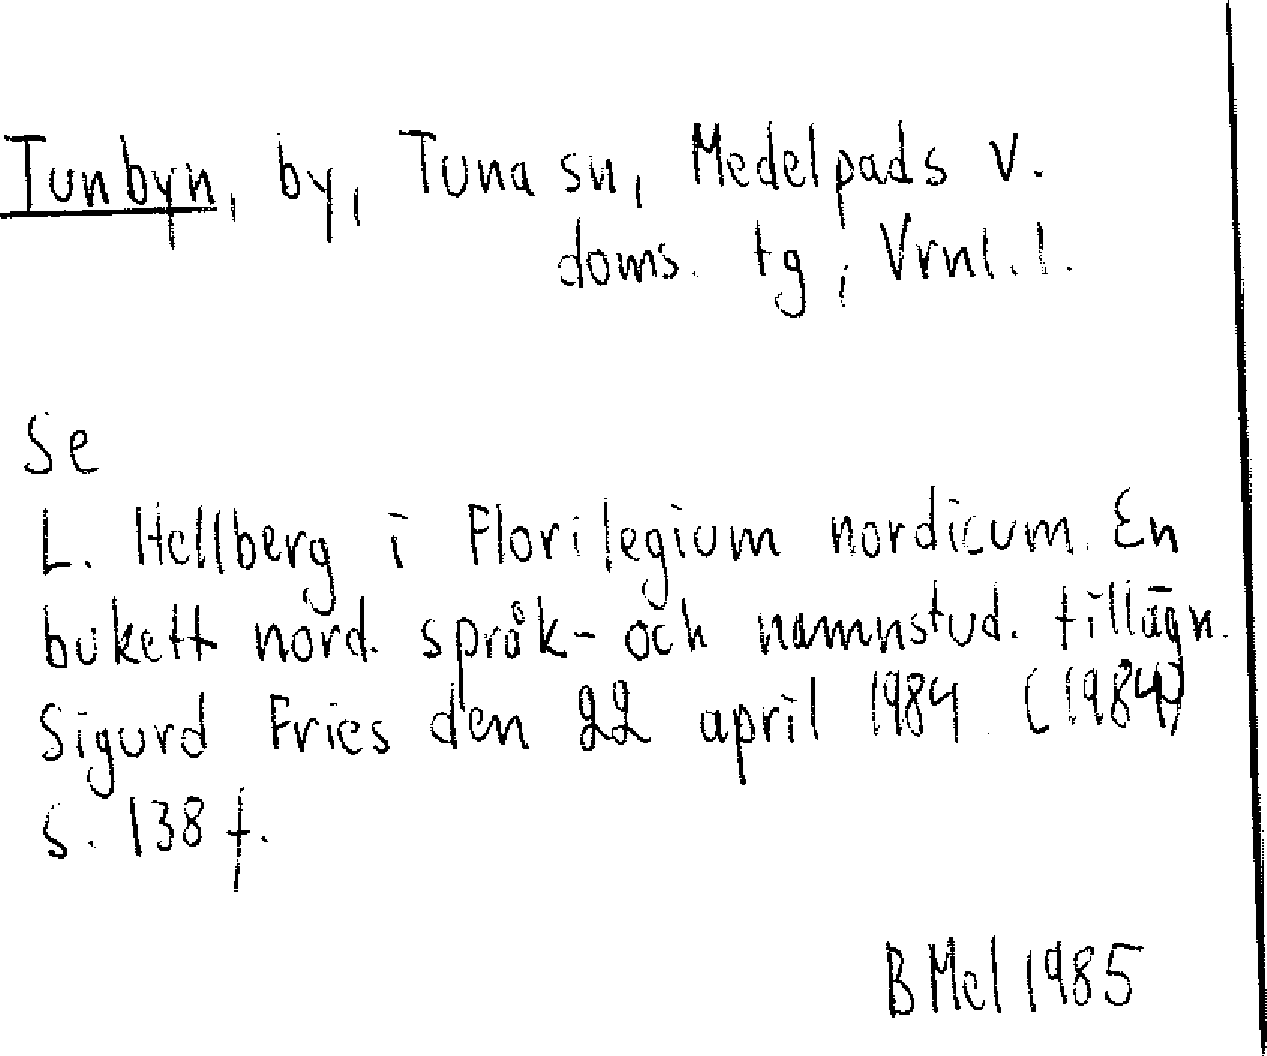 Tunbyn, by, Tuna sn, Medelpads v.
doms. tg, Vrnl. l.
Se
L. Hellberg i Florilegium nordicum. En
bukett nord. språk- och namnstud. tillägn.
Sigurd Fries den 22 april 1984 (1984)
s. 138 f.
BMel 1985